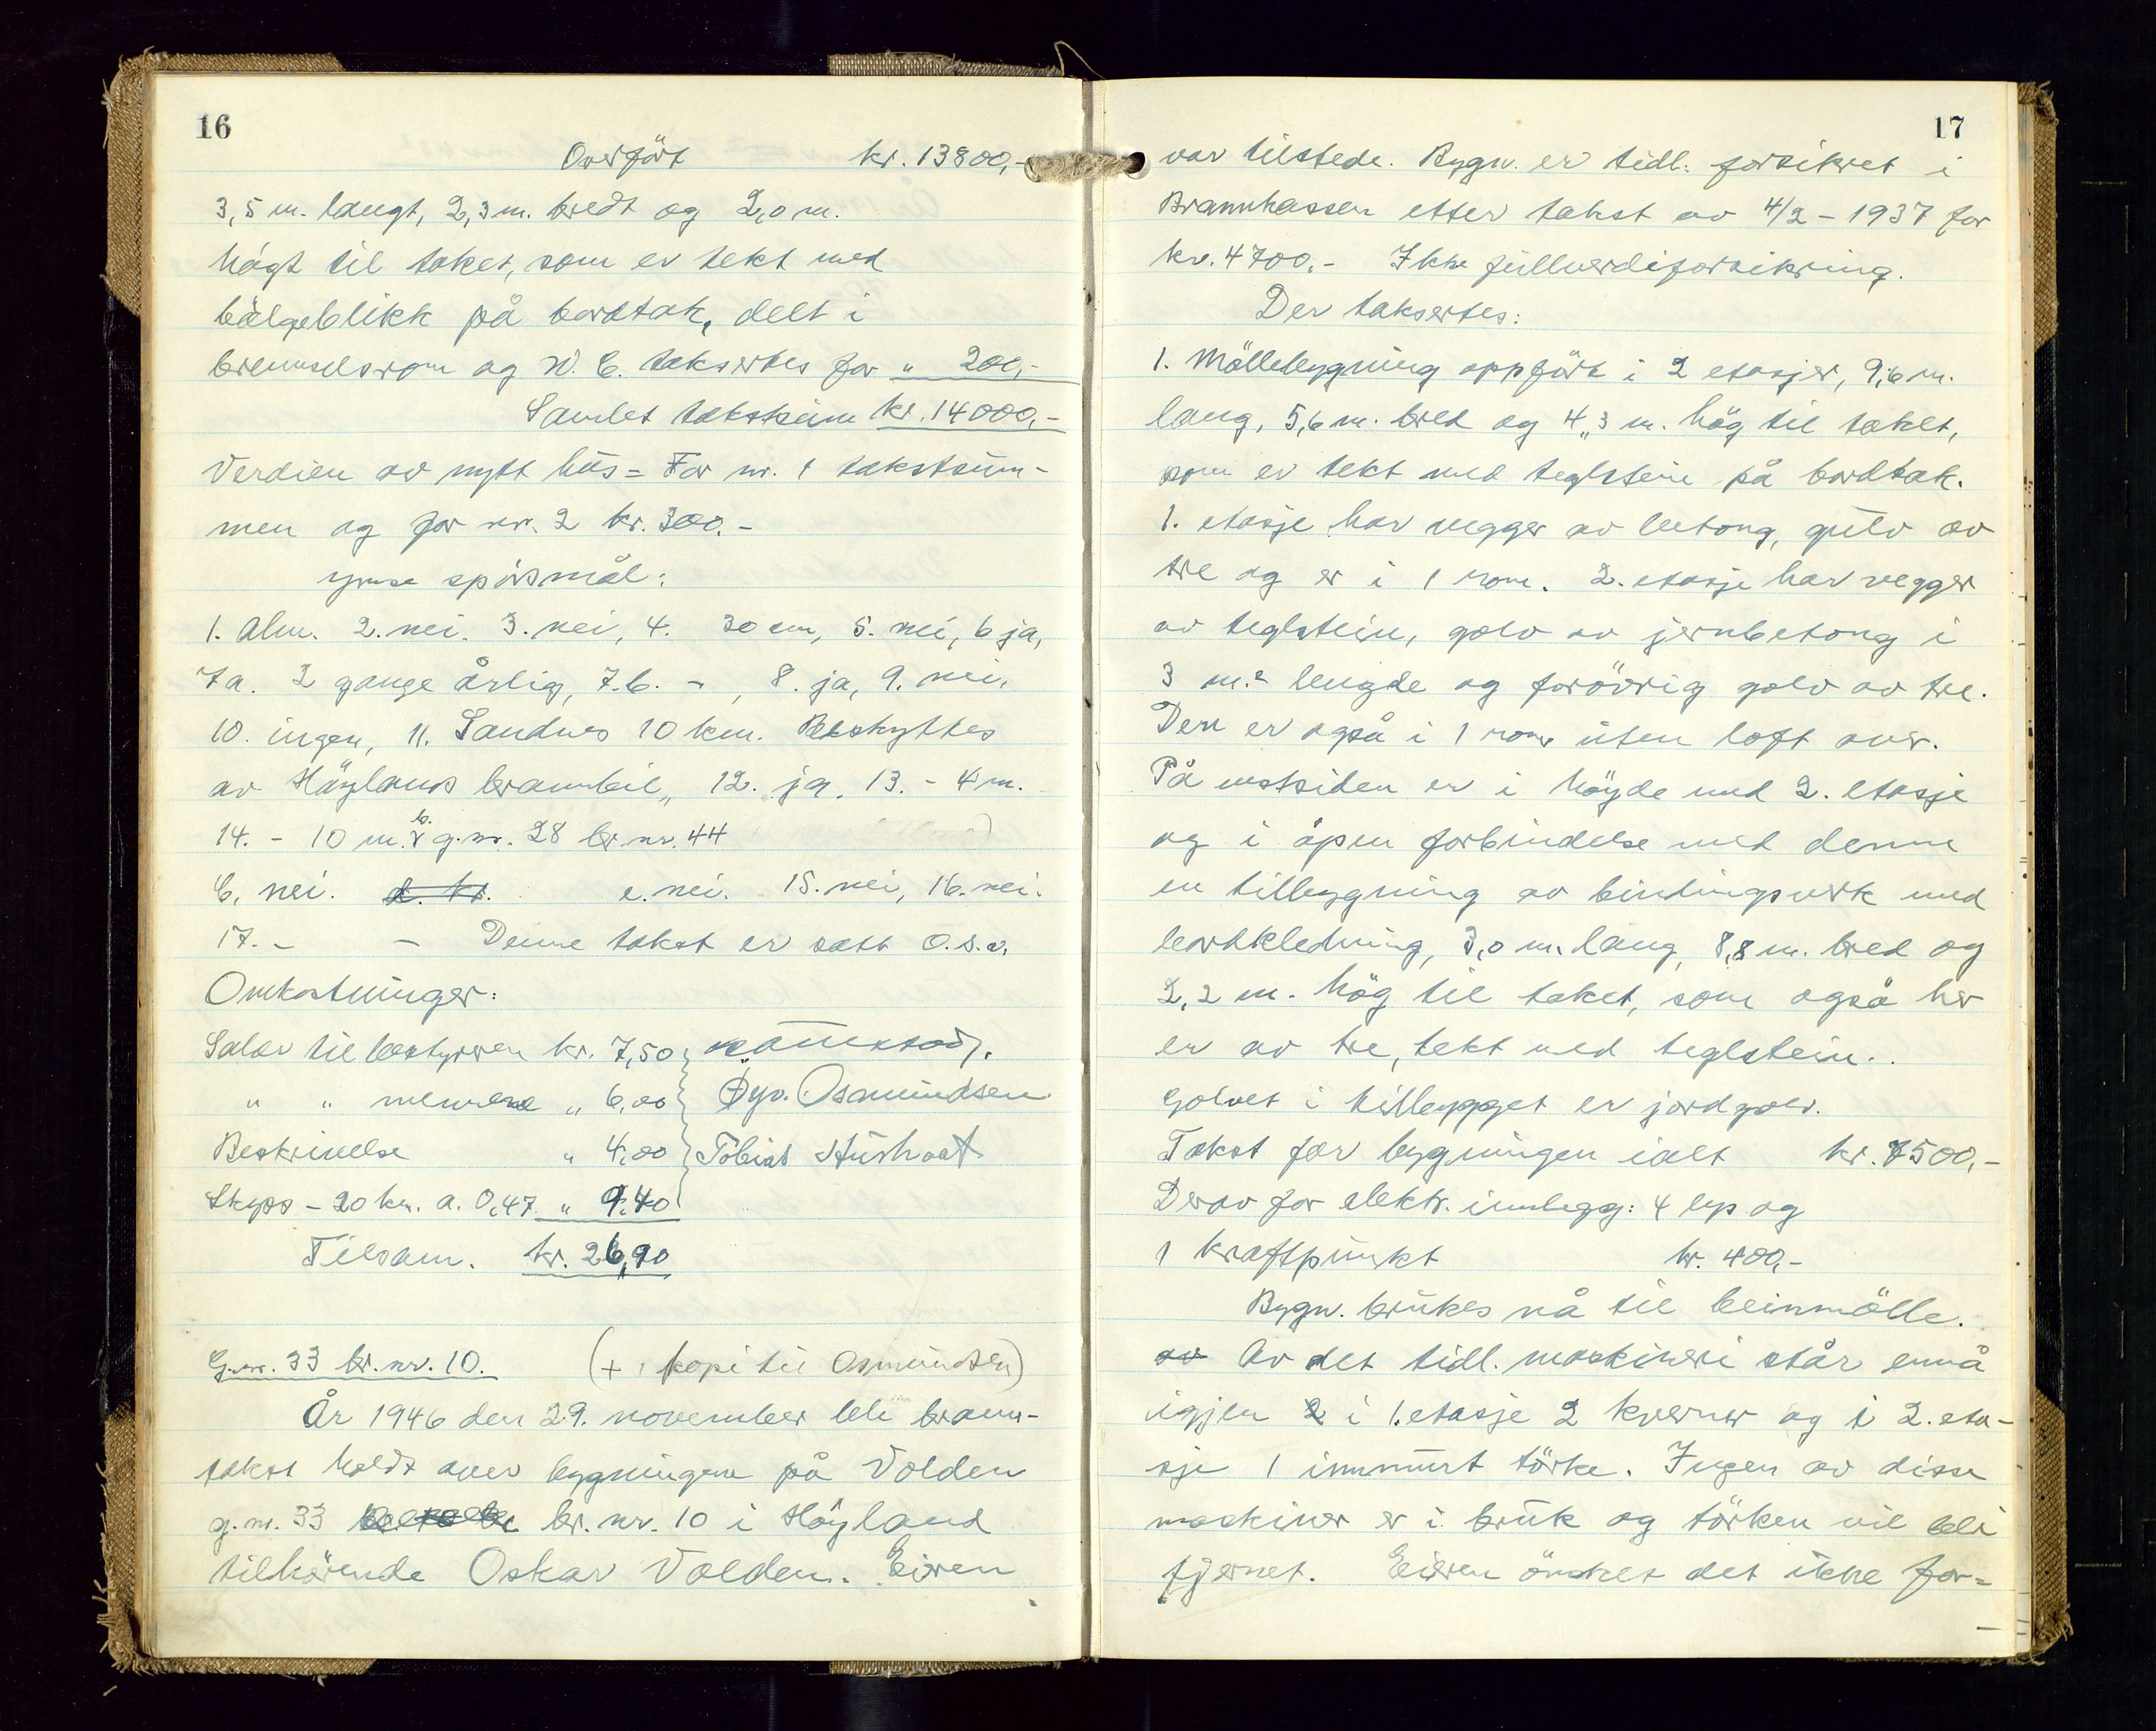 16
Overfört kr. 13800,-
3,5 m. langt, 2,3 m. bredt og 2,0 m.
högt til taket, som er tekt med
bölgeblikk på bordtak, delt i
brenselsrom og W.C. taksertes for " 200,-
Samlet takstsum kr. 14000,-
Verdien av nytt hus = For nr. 1 takstsum-
men og for nr. 2 kr. 300.-
ymse spörsmål:
1. Alm. 2. nei. 3. nei, 4. 30 cm, 5. nei, 6 ja,
7a. 2 gange årlig, 7.b. - , 8. ja, 9. nei,
10. ingen, 11. Sandnes 10 km. Beskyttes
av Höylands brannbil, 12. ja. 13. - 4 m.
14. - 10 m. b. g.nr. 28 br.nr. 44
C. nei. d. kr. e. nei. 15. nei, 16. nei.
17. - - Denne takst er satt o.s.v.
Omkostninger:
Salær til bestyreren kr. 7,50
" " mennene " 6,00 Øyv. Osmundsen
Beskrivelse " 4,00 Tobias
Skyss - 20 km. a. 0,47 " 9,40
Tilsam. kr. 26,90
G.nr. 33 br.nr. 10. (+ 1 kopi til Osmundsen)
År 1946 den 29. november ble brann-
takst holdt over bygningene på Volden
g.nr. 33 br.nr. 10 i Höyland
tilhörende Oskar Volden. Eieren
17
var tilstede. Bygn. er tidl. forsikret i
Brannkassen etter takst av 4/2 - 1937 for
kr. 4700.- Ikke fullverdiforsikring.
Der taksertes:
1. Möllebygning oppfört i 2 etasjer, 9,6 m.
lang, 5,6 m. bred og 4,3 m. hög til taket,
som er tekt med teglstein på bordtak.
1. etasje har vegger av betong, gulv av
tre og er i 1 rom. 2. etasje har vegger
av teglstein, golv av jernbetong i
3 m.² lengde og forövrig golv av tre.
Den er også i 1 rom uten loft over.
På vestsiden er i höyde med 2. etasje
og i åpen forbindelse med denne
en tilbygning av bindingsverk med
bordkledning, 3,0 m. lang, 8,8 m. bred og
2,2 m. hög til taket, som også her
er av tre, tekt med teglstein.
Golvet i tilbygget er jordgolv.
Takst for bygningen ialt kr. 7500,-
Derav for elektr. innlegg: 4 lys og
1 kraftpunkt kr. 400,-
Bygn. brukes nå til beinmölle.
av Av det tidl. maskineri står ennå
igjen 2 i 1. etasje 2 kverner og i 2. eta-
sje 1 innmurt törke. Ingen av disse
maskiner er i bruk og törken vil bli
fjernet. Eieren önsket det ikke for-